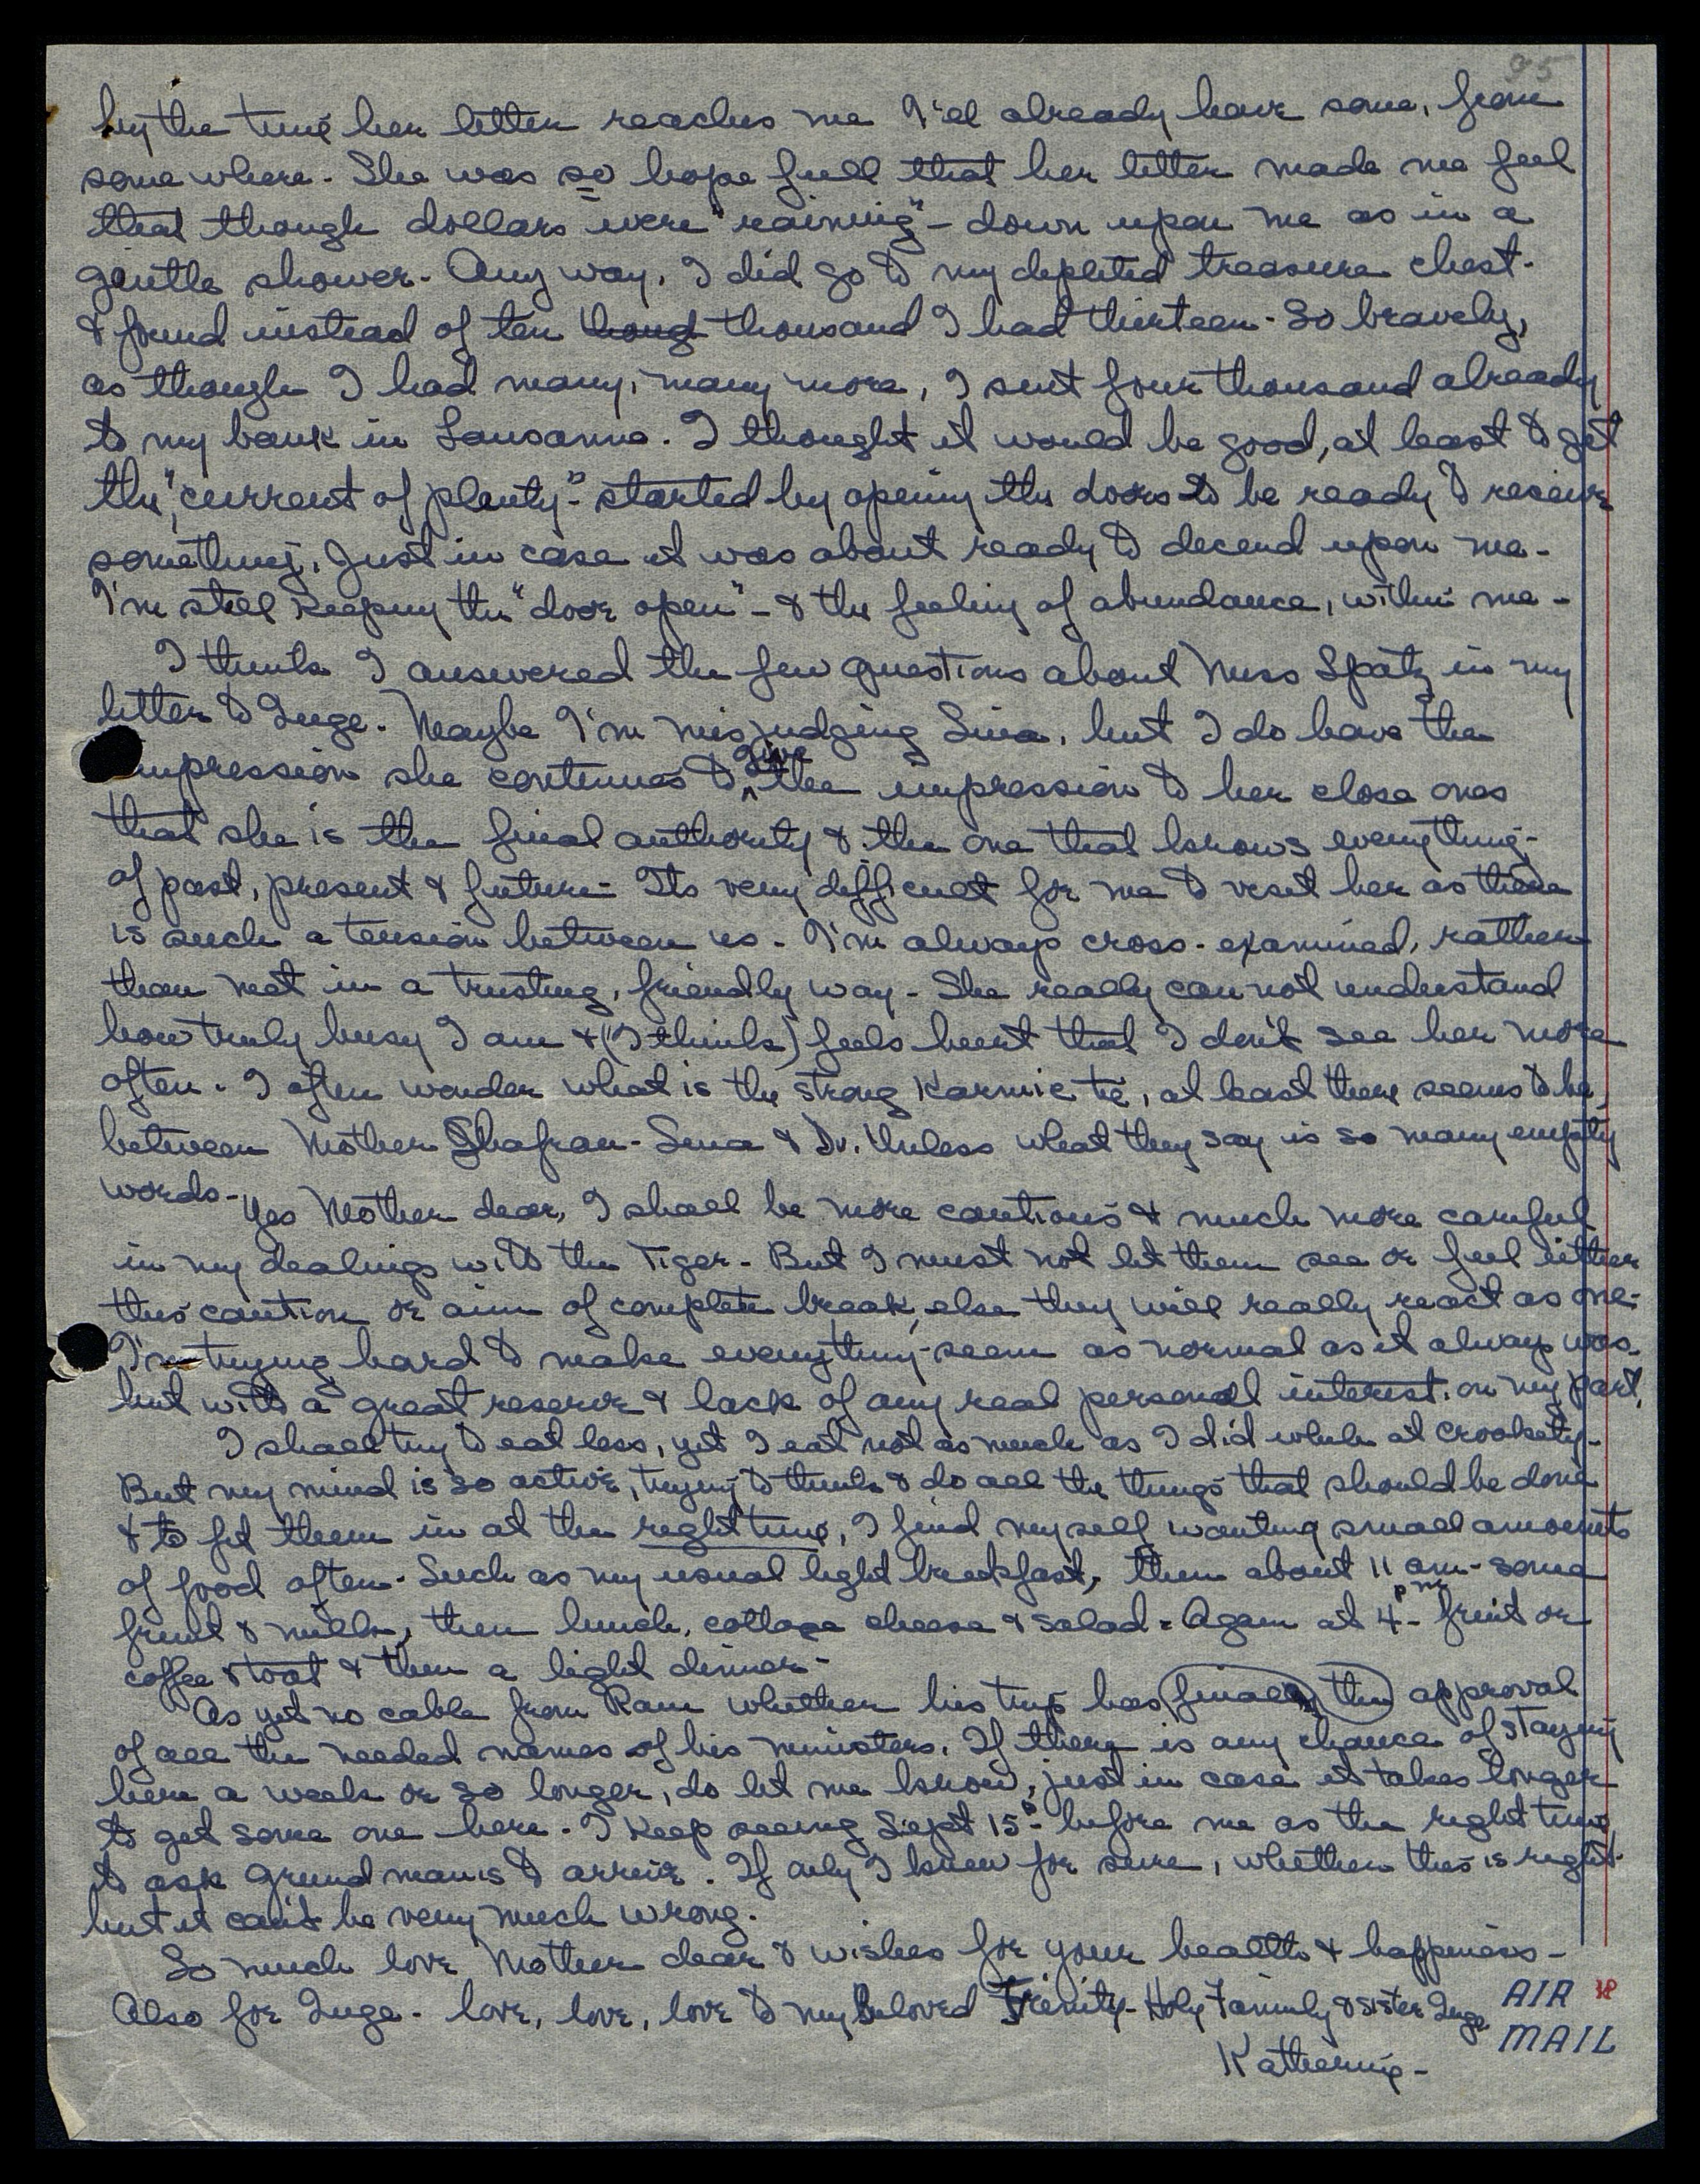 95
by the time her letter reaches me I'd already have some, from
some where. She was so hope full that her letter made me feel
that though dollars were "raining" - down upon me as in a
gentle shower. Any way, I did go to my depleted treasure chest.
& found instead of ten thoug thousand I had thirteen. So bravely,
as though I had many, many more, I sent four thousand already
to my bank in Lausanne. I thought it would be good, at least to get
the "current of plenty" - started by opening the doors to be ready to receive
something, just in case it was about ready to decend upon me -
I'm still keeping the "door open" - & the feeling of abundance, within me -
I think I answered the few questions about Miss Spatz in my
letter to Inge. Maybe I'm misjudging Sina, but I do have the
impression she continues to give the impression to her close ones
that she is the final authority & the one that knows everything -
of past, present & future - Its very difficult for me to visit her as there
is such a tension between us - I'm always cross-examined, rather
than met in a trusting, friendly way - She really can not understand
how truly busy I am & (I think) feels heart that I don't see her more
often. I often wonder what is the strong Karmic tie, at least there seems to be,
between Mother Shafran - Sina & Dv. Unless what they say is so many empty
words -
Yes Mother dear, I shall be more cautious & much more careful
in my dealings with the Tiger - But I must not let them see or feel either
this caution or aim of complete break, else they will really react as one -
I'm trying hard to make everything seem as normal as it always was -
but with a great reserve & lack of any real personal interest on my part.
I shall try to eat less, yet I eat not as much as I did while at Crooksety -
But my mind is so active, trying to think & do all the things that should be done
& to fit them in at the right time, I find myself wanting small amounts
of food often. Such as my usual light breakfast, then about 11 am - some
fruit & milk, then lunch, cottage cheese & salad - Again at 4 pm - fruit or
coffee & toast & then a light dinner -
As yet no cable from Ram whether his trip has finally the approval
of all the needed names of his ministers. If there is any chance of staying
here a week or so longer, do let me know, just in case it takes longer
to get some one here. I keep seeing Sept 15th - before me as the right time
to ask Grundmanis to arrive. If only I knew for sure, whether this is right.
but it can't be very much wrong.
So much love Mother dear & wishes for your health & happiness -
Also for Inge - love, love, love to my Beloved Trinity - Holy Family & sister Inge
Katherine -
AIR
MAIL